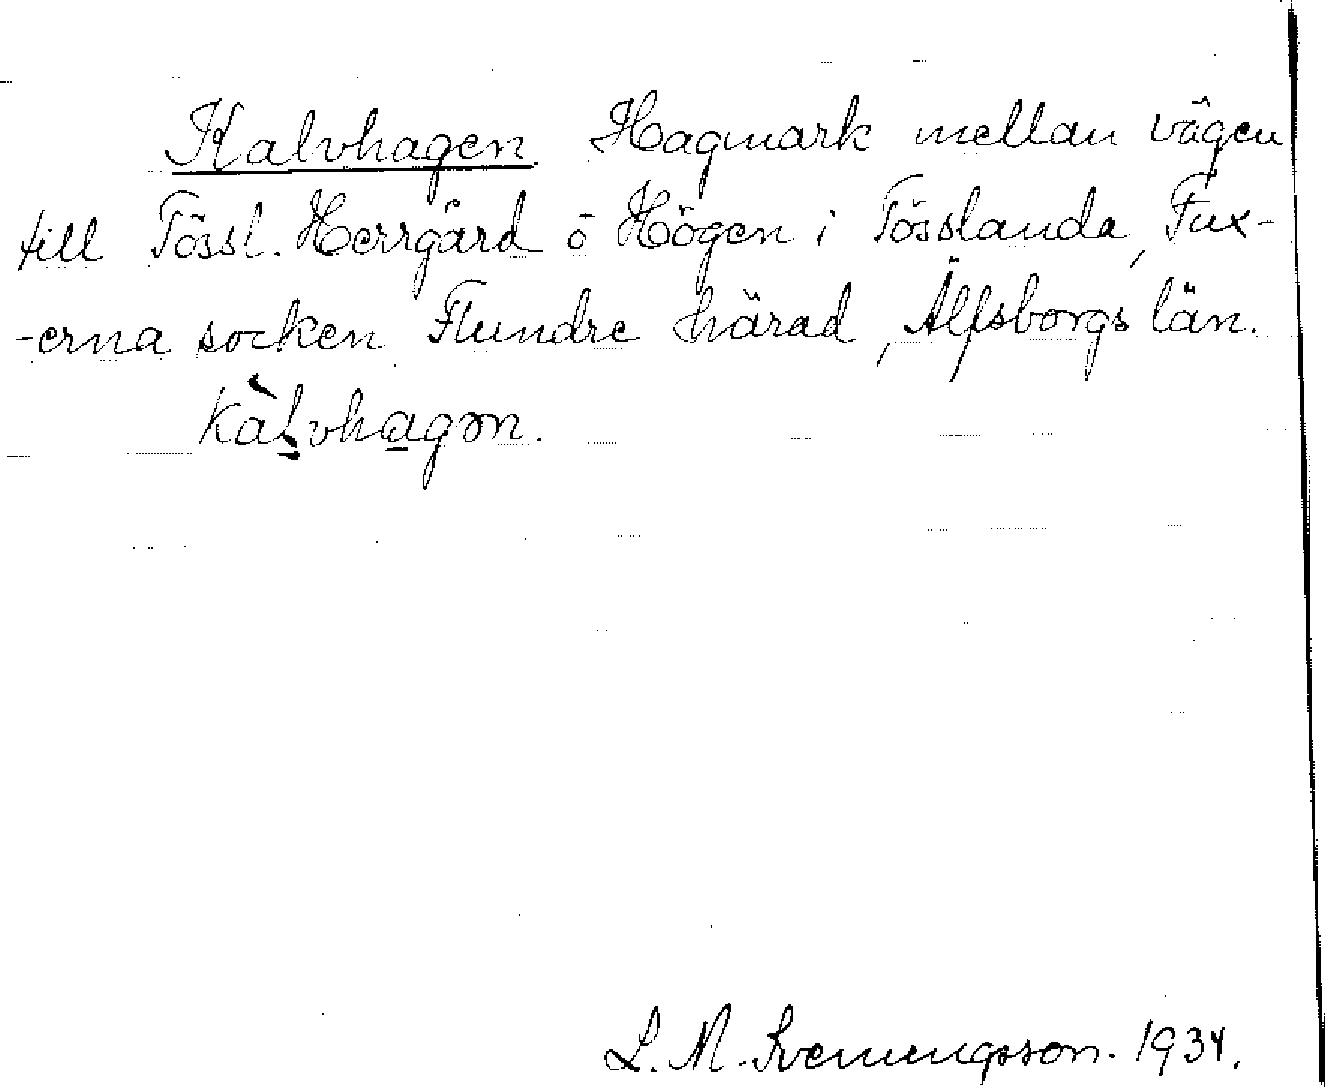 Kalvhagen. Hagmark mellan vägen
till Tössl. Herrgård ö Högen i Tösslanda, Fux-
-erna socken Flundre härad, Älfsborgs län.
kàḷvhagən.
L. M. Svenungsson. 1934.